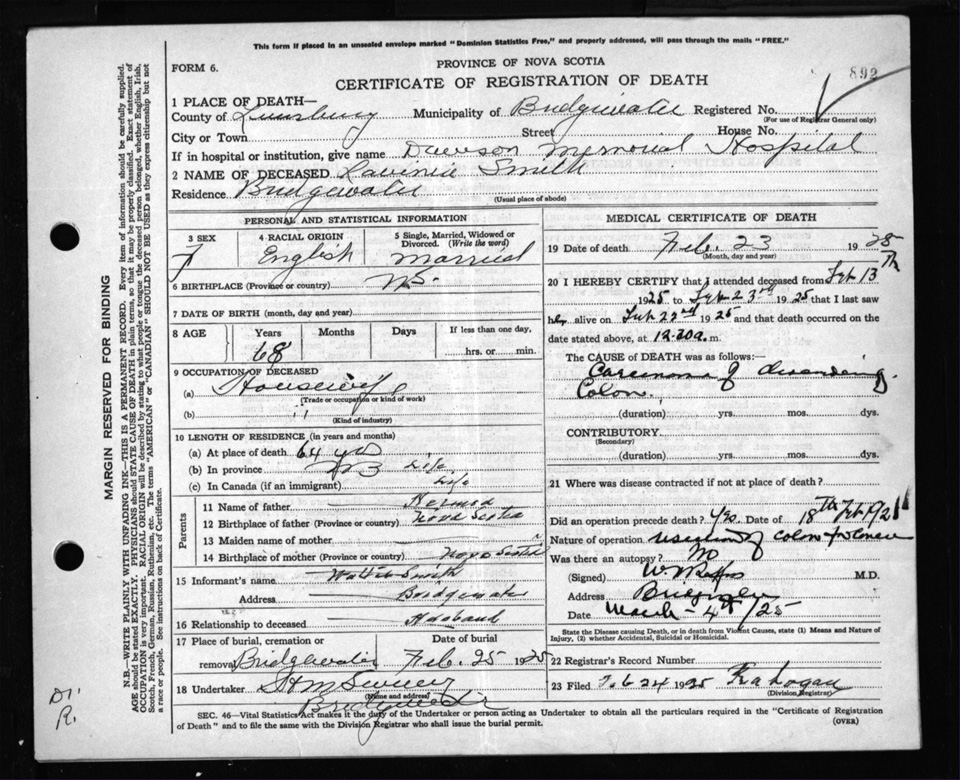 This form if placed in an unsealed envelope marked "Dominion Statistics Free," and properly addressed, will pass through the mails "FREE."
PROVINCE OF NOVA SCOTIA
FORM 6.
CERTIFICATE OF REGISTRATION OF DEATH
892
1 PLACE OF DEATH—
County of Lunenburg Municipality of Bridgewater Registered No.
(For use of Registrar General only)
City or Town Street House No.
If in hospital or institution, give name Dawson Memorial Hospital
2 NAME OF DECEASED Lavinia Smith
Residence Bridgewater
(Usual place of abode)
PERSONAL AND STATISTICAL INFORMATION
3 SEX 4 RACIAL ORIGIN 5 Single, Married, Widowed or Divorced. (Write the word)
F English Married
6 BIRTHPLACE (Province or country) N.S.
7 DATE OF BIRTH (month, day and year)
8 AGE Years Months Days If less than one day,
68 hrs. or min.
9 OCCUPATION OF DECEASED
(a) Housewife
(Trade or occupation or kind of work)
(b) " "
(Kind of industry)
10 LENGTH OF RESIDENCE (in years and months)
(a) At place of death 64 yrs
(b) In province Life
(c) In Canada (if an immigrant) Life
Parents
11 Name of father
12 Birthplace of father (Province or country) Nova Scotia
13 Maiden name of mother
14 Birthplace of mother (Province or country) Nova Scotia
15 Informant's name Smith
Address Bridgewater
16 Relationship to deceased Husband
17 Place of burial, cremation or removal Bridgewater Date of burial Feb. 25 1925
18 Undertaker
(Name and address)
Bridgewater
MEDICAL CERTIFICATE OF DEATH
19 Date of death Feb. 23 1925
(Month, day and year)
20 I HEREBY CERTIFY that I attended deceased from Feb 13th
1925 to Feb 23rd 1925 that I last saw
her alive on Feb 22nd 1925 and that death occurred on the
date stated above, at 12.30a. m.
The CAUSE OF DEATH was as follows:—
Carcinoma of descending
Colon.
(duration) yrs. mos. dys.
CONTRIBUTORY
(Secondary)
(duration) yrs. mos. dys.
21 Where was disease contracted if not at place of death?
Did an operation precede death? Yes. Date of 18th Feb
Nature of operation resection of colon
Was there an autopsy? No
(Signed) M.D.
Address
Date March 4th /25
State the Disease causing Death, or in death from Violent Causes, state (1) Means and Nature of Injury, (2) whether Accidental, Suicidal or Homicidal.
22 Registrar's Record Number
23 Filed Feb 24 1925 Logan
(Division Registrar)
SEC. 46—Vital Statistics Act makes it the duty of the Undertaker or person acting as Undertaker to obtain all the particulars required in the "Certificate of Registration
of Death" and to file the same with the Division Registrar who shall issue the burial permit. (OVER)
MARGIN RESERVED FOR BINDING
N.B.—WRITE PLAINLY WITH UNFADING INK—THIS IS A PERMANENT RECORD. Every item of information should be carefully supplied.
AGE should be stated EXACTLY. PHYSICIANS should STATE CAUSE OF DEATH in plain terms, so that it may be properly classified. Exact statement of
OCCUPATION is very important. RACIAL ORIGIN will be described by stating to what people or tongue the deceased person belonged, whether English, Irish,
Scotch, French, German, Russian, Ruthenian, etc. The terms "AMERICAN" or "CANADIAN" SHOULD NOT BE USED as they express citizenship but not
a race or people. See instructions on back of Certificate.